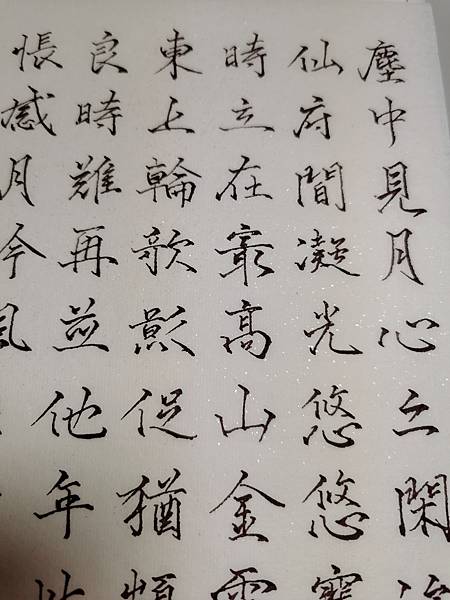 塵中見月心亦閑
仙府間凝光悠悠寒
時立在最高山金
東上輪欹影促猶頻
良時難再並他年此
悵感月今風